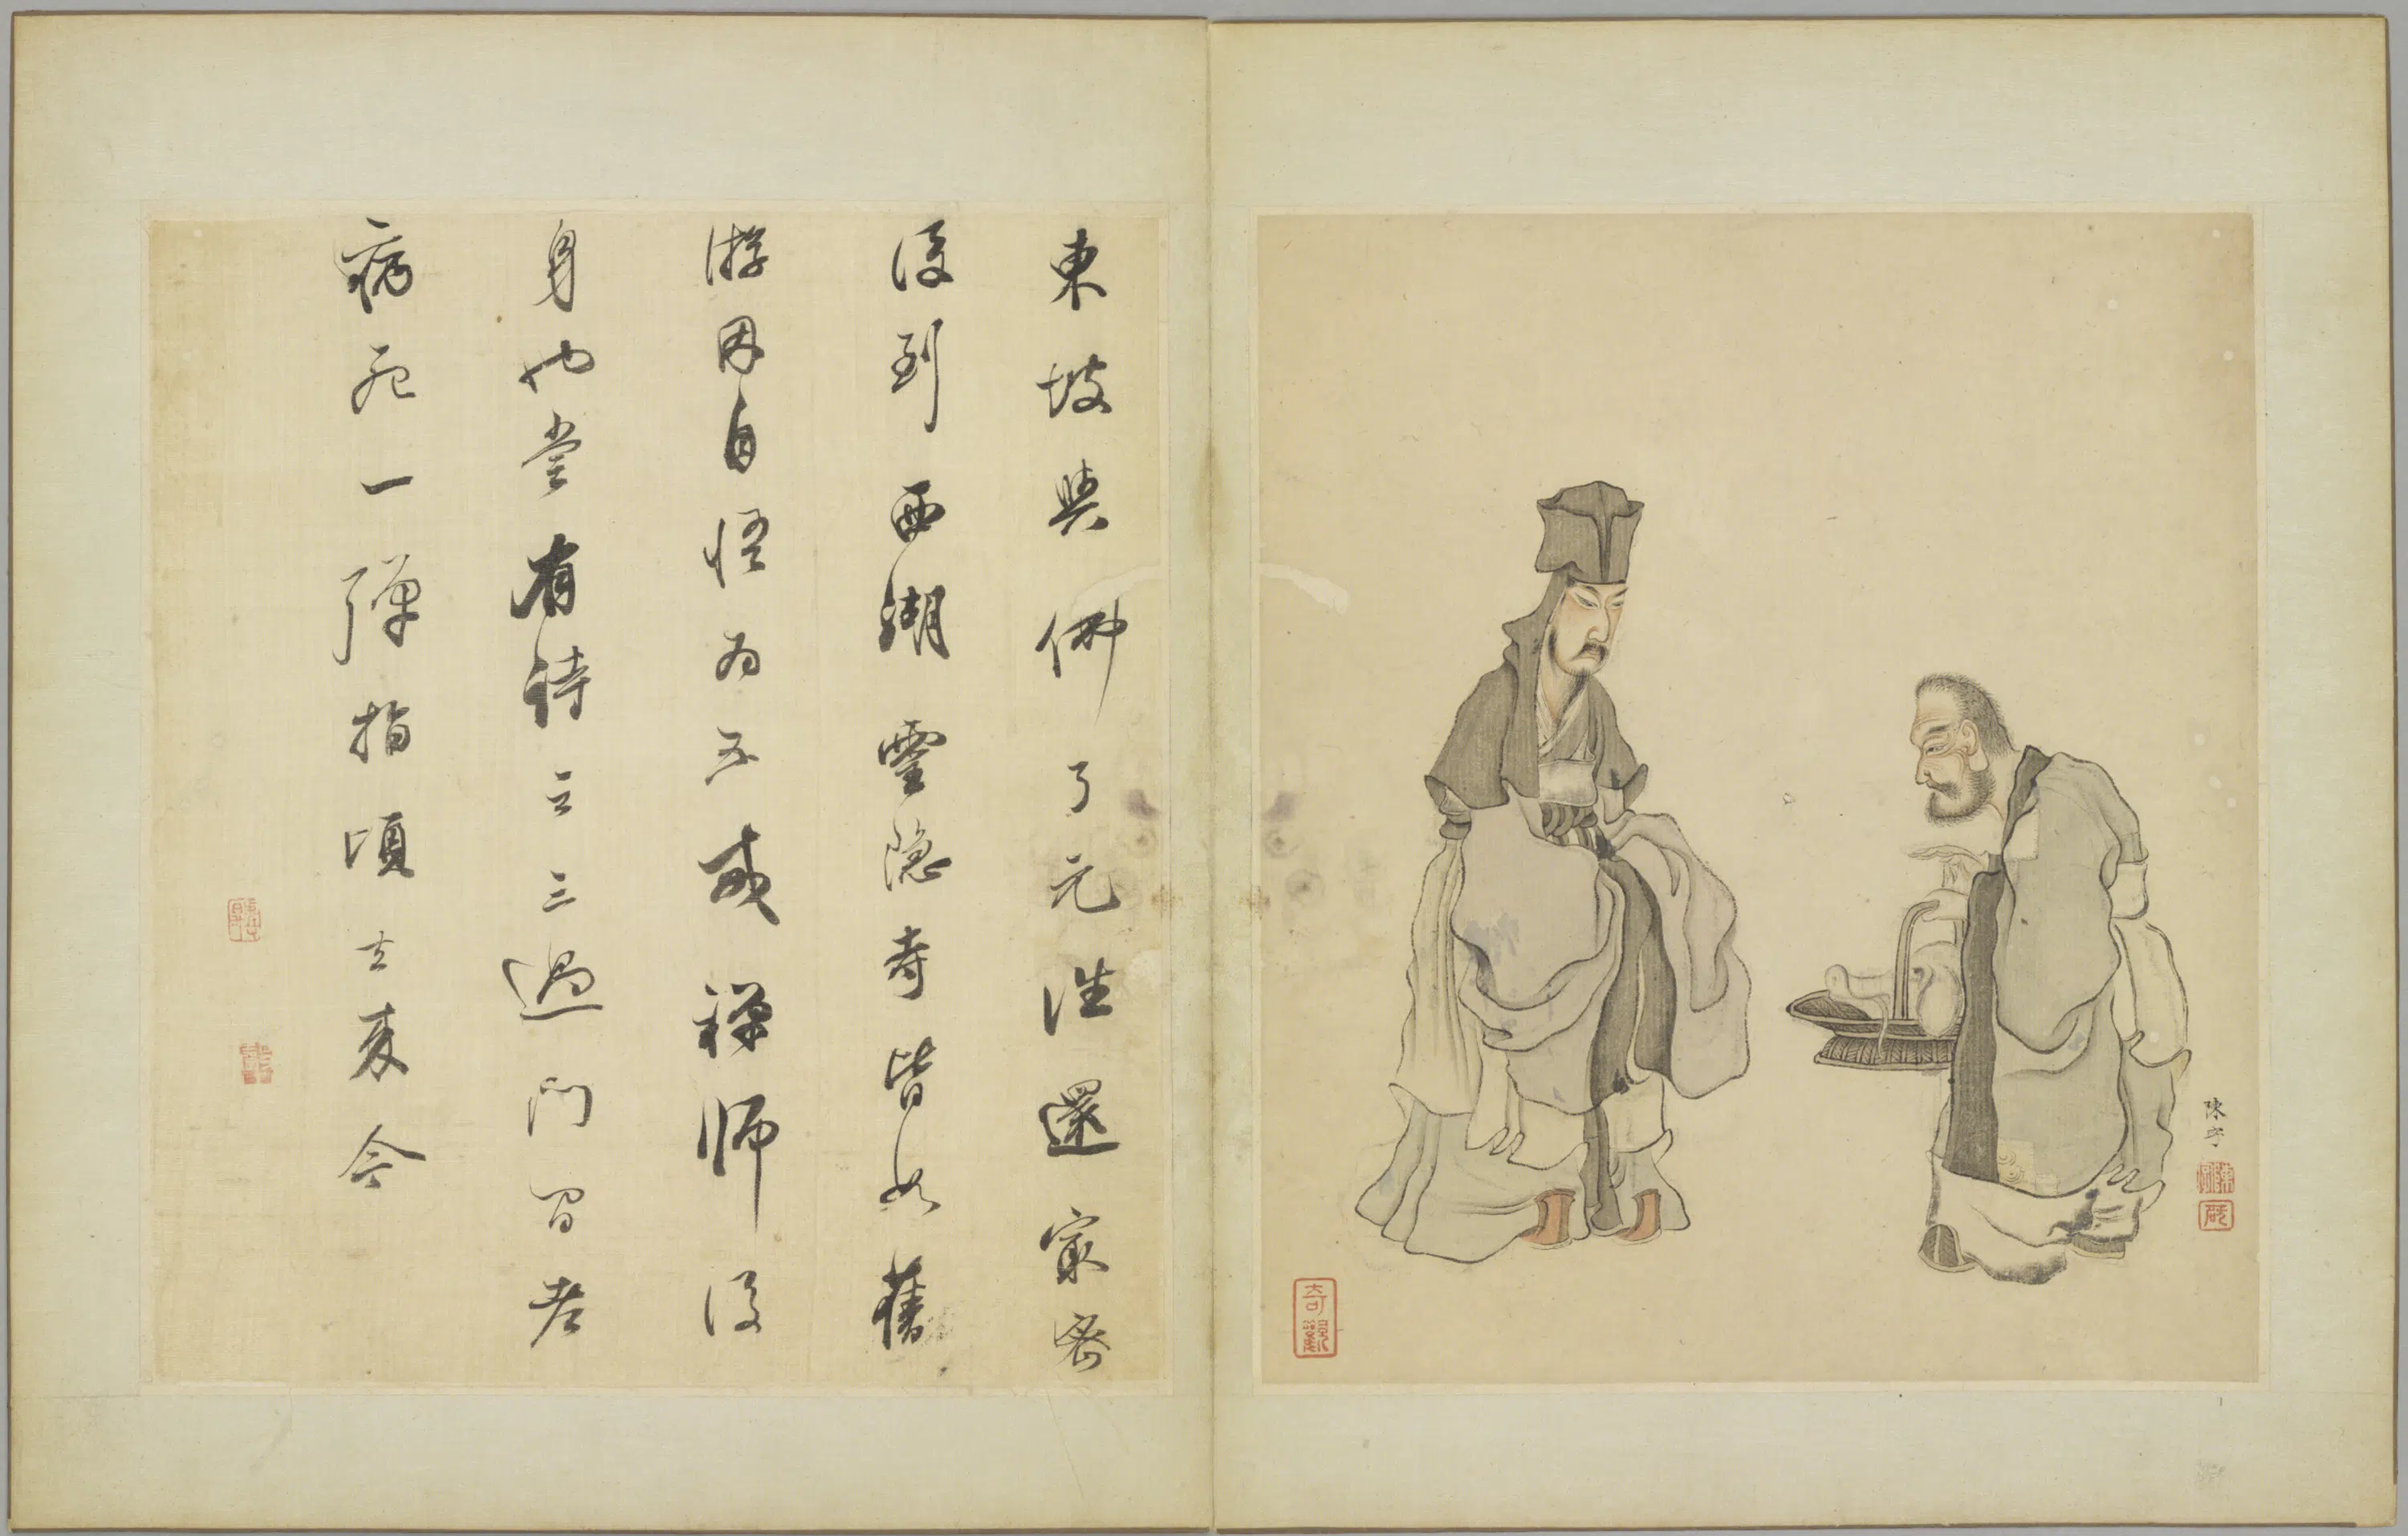 陳字
奇觀
東坡與佛了元往還冣密
後到西湖靈隱寺皆如舊
游因自悟為五戒禪師後
身也嘗有詩云三過門間老
病死一彈指頃去來今